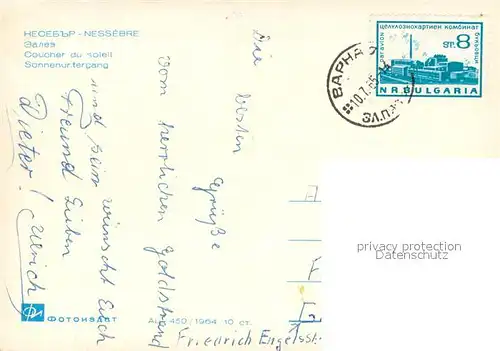 НЕСЕБЪР - NESSÈBRE
Залез
Coucher du soleil
Sonnenuntergang
Die besten Grüße
vom herrlichen Goldstrand
und sein wünscht Euch
Freund
Dieter! Ulrich
par avion целулознохартиен комбинат
ст. 8
N R. BULGARIA
ВАРНА
10.7.65
ЗЛ.П.
privacy protection
watermark
ФОТОИЗДАТ
450/1964 10 ст.
Friedrich Engelsstr